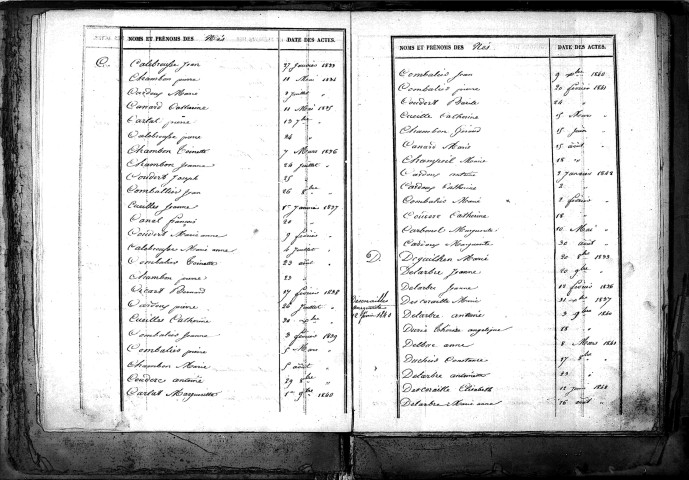 NOMS ET PRÉNOMS DES Nés DATE DES ACTES.
C. Calebrousse Jean 27 Janvier 1833
Chambon pierre 11 Mai 1834
Cardoux Marie 2 juillet "
Canard Catherine 11 Mai 1835
Cartal pierre 13 7bre "
Calebrousse pierre 24 "
Chambon Toinette 7 Mars 1836
Chambon Jeanne 24 juillet "
Coudert Joseph 25 "
Combattes Jean 26 8bre "
Cueilles Jeanne 1er Janvier 1837
Canet françois 20 "
Coudert Marie anne 9 février "
Calebrousse Marie anne 4 juillet "
Combalier Toinette 23 août "
Chambon pierre 23 "
Bernard 17 février 1838
Cardoux pierre 20 juillet "
Cueilles Catherine 30 "
Combalies Jeanne 3 février 1839
Combalies pierre 5 Mars "
Chambon Marie 5 août "
Couderc antoine 29 8bre "
Cartal Marguerite 1er 9bre 1840
NOMS ET PRÉNOMS DES Nés DATE DES ACTES.
Combalies Jean 9 1840
Combalies pierre 20 février 1841
Coudert 24 "
Cueille Catherine 15 Mars "
Chambon Gérard 15 juin "
Canard Marie 25 août "
Champeil Marie 18 "
Cardoux antoine 2 Janvier 1842
Cardoux Catherine 2
Combalies Marie 2 février "
Catherine 18 "
Carbonel Marguerite 10 Mai "
Cardoux Marguerite 30 août "
D. Deguilhem Marie 20 8bre 1833
Delarbre Jeanne 20 9bre "
Delarbre Jeanne 12 février 1836
Descoraille Marie 31 1837
Delarbre antoine 3 9bre 1840
angelique 18 "
Delbire anne 8 Mars 1841
Duchein Constance 17 8bre
Delarbre antoinette 23 "
Descoraille Elisabeth 12 juin 1842
Delarbre Marie anne 16 août "